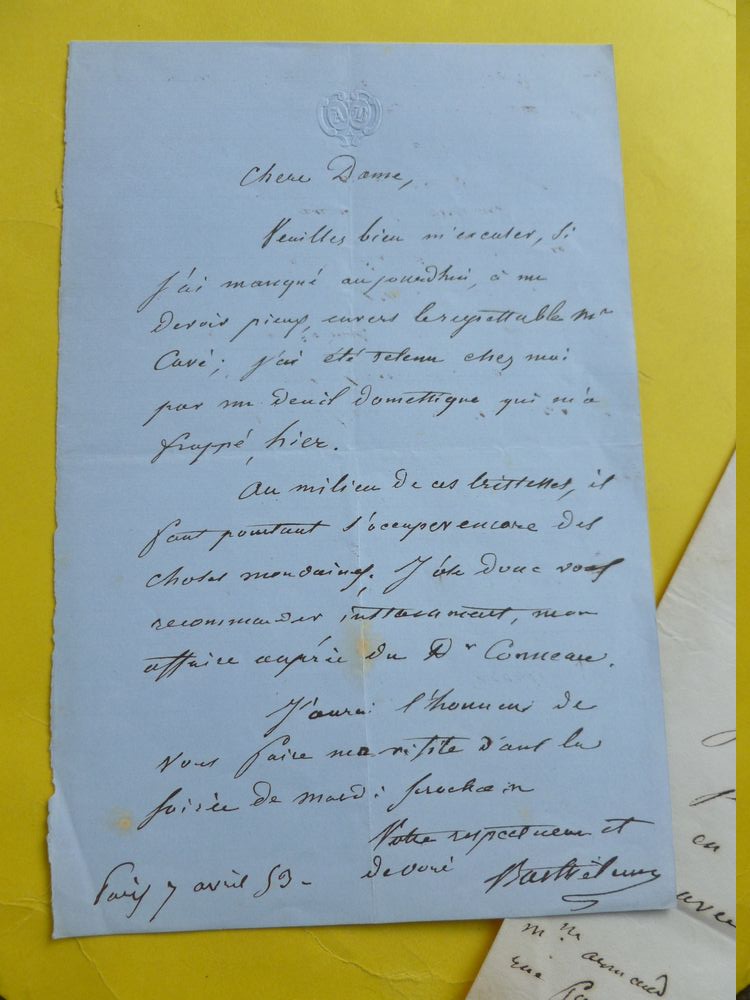 Chere Dame,
Veuilles bien m'excuser, si
j'ai manqué aujourdhui, à un
devoir pieux, envers le regrettable Mr
Cavé; j'ai été retenu chez moi
par un deuil domestique qui m'a
frappé, hier.
Au milieu de ces tristesses, il
faut pourtant s'occuper encore des
choses mondaines. J'ose donc vous
recommander, instamment, mon
affaire auprès du Dr Conneau.
J'aurai l'honneur de
vous faire ma visite dans la
soirée de mardi prochain
Votre respectueux et
devoué Barthélemy
Paris 7 avril 53.
en
avec
Mr armand
rue